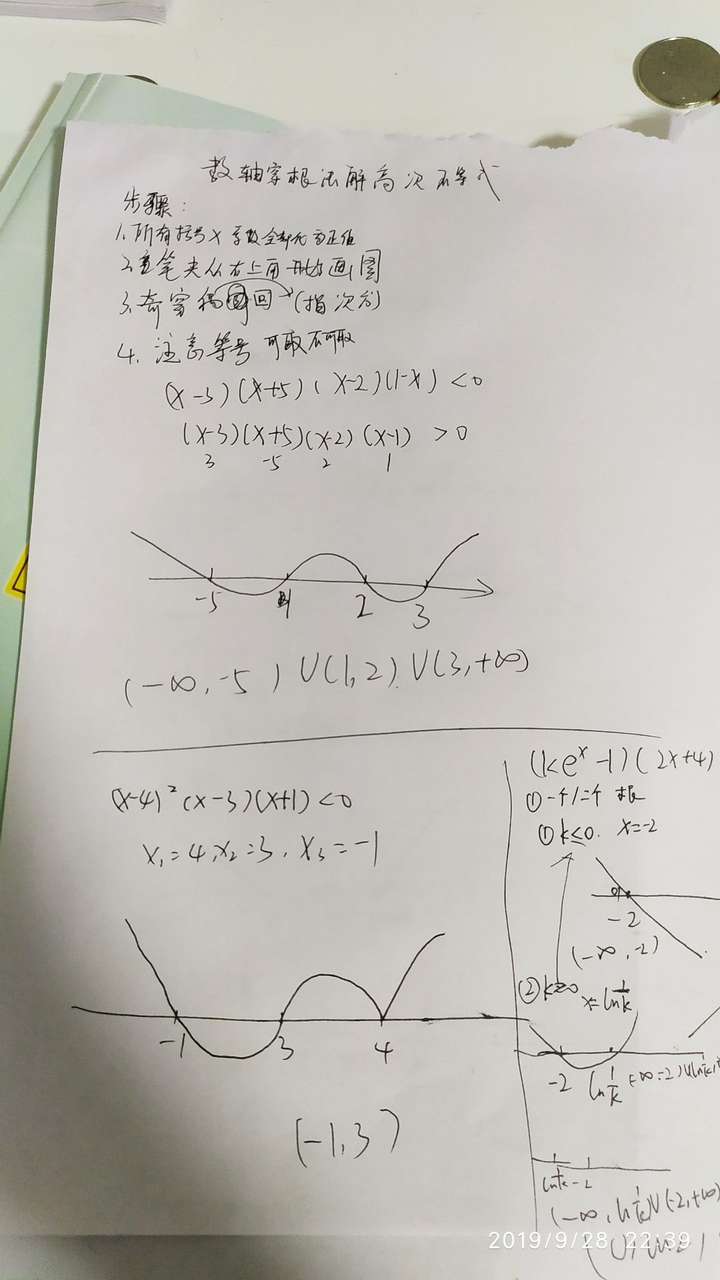 数轴穿根法解高次不等式
步骤:
1.所有括号x系数全部化为正值
2.笔尖从右上角开始画图
3.奇穿偶回(指次方)
4.注意等号 可取不可取
(x-3)(x+5)(x-2)(1-x)<0
(x-3)(x+5)(x-2)(x-1)>0
3 -5 2 1
-5 1 2 3
(-∞,-5)∪(1,2)∪(3,+∞)
(x-4)²(x-3)(x+1)<0
x₁=4,x₂=3,x₃=-1
-1 3 4
(-1,3)
(keˣ-1)(2x+4)
①一个/二个 根
①k≤0. x=-2
-2
(-∞,-2)
②k>0 x=ln1/k
-2 ln1/k (-∞,-2)∪(ln1/k,
ln1/k -2
(-∞,ln1/k)∪(-2,+∞)
2019/9/28 22:39